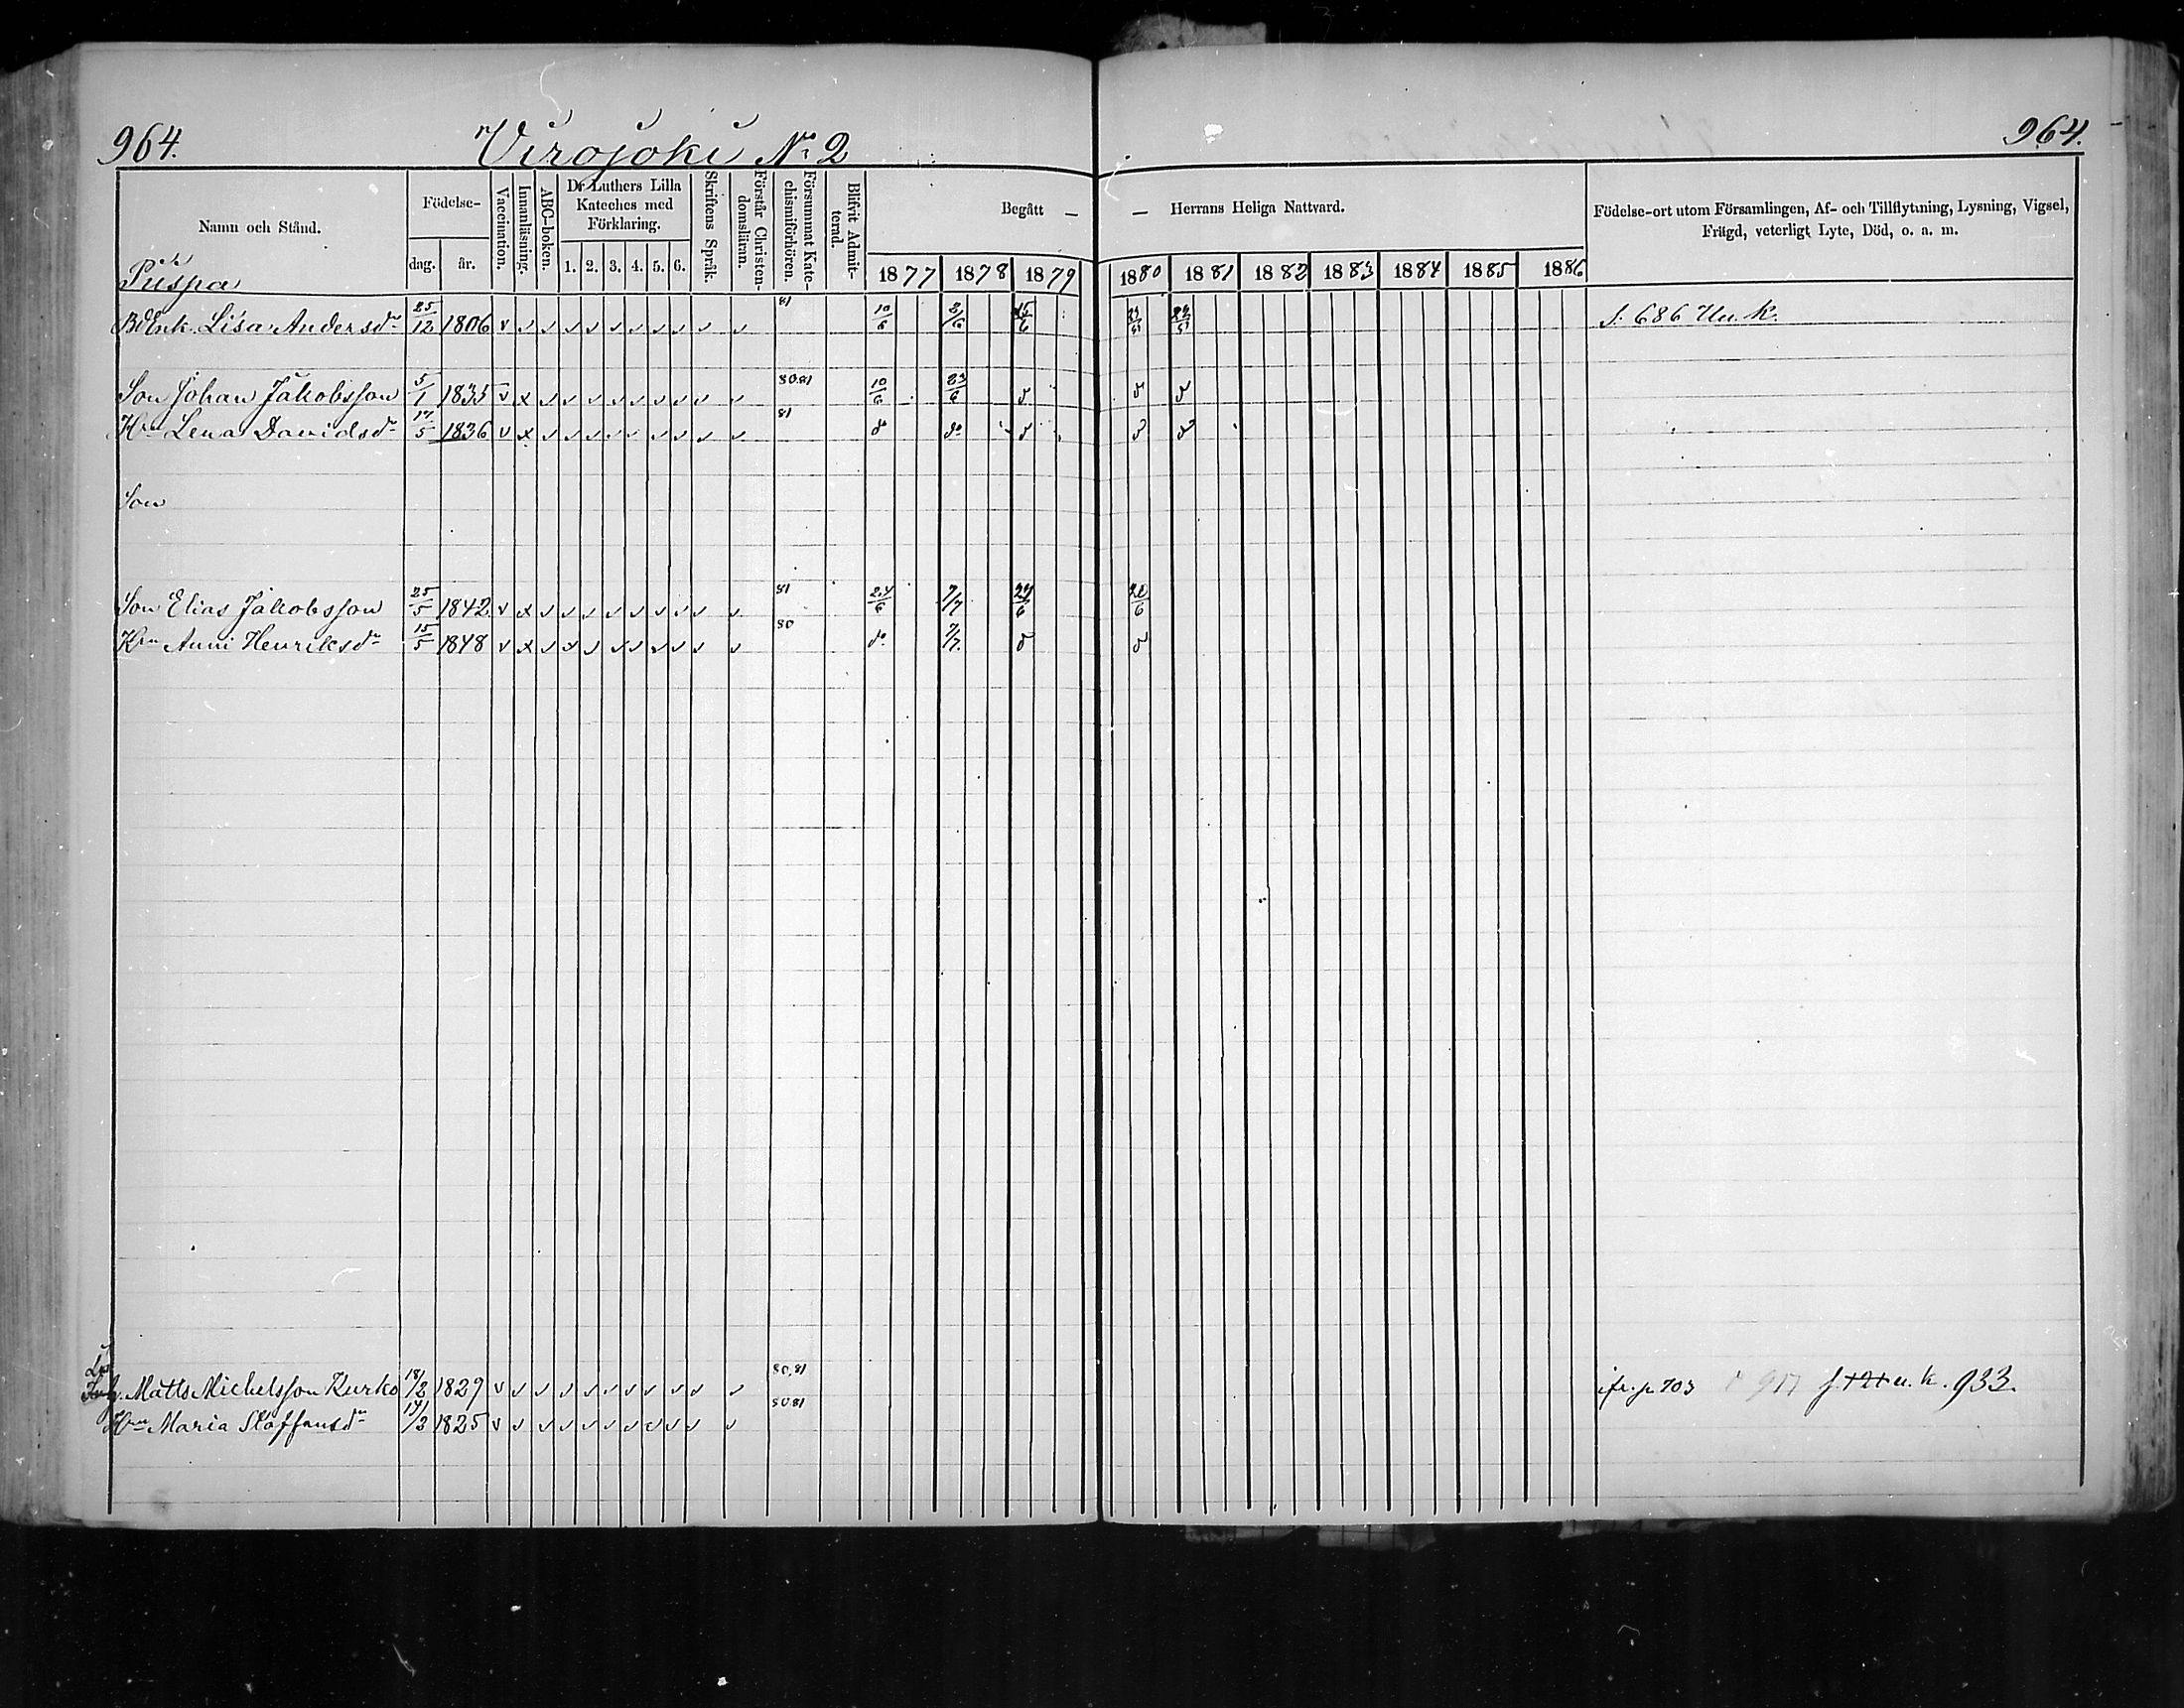 964. Virojoki No 2 964.
Namn och Stånd. Födelse- dag. år. Vaccination. Innanläsning. ABC-boken. Dr Luthers Lilla Kateches med Förklaring. 1. 2. 3. 4. 5. 6. Skriftens Språk. Förstår Christendomsläran. Försummat Katechismiförhören. Blifvit Admitterad. Begått — — Herrans Heliga Nattvard. Födelse-ort utom Församlingen, Af- och Tillflyttning, Lysning, Vigsel, Frägd, veterligt Lyte, Död, o. a. m.
1877 1878 1879 1880 1881 1882 1883 1884 1885 1886
Piispa
Enk. Lisa Andersdr 25/12 1806 v v v v v v v v v v v 81 10/6 f. 686 Uu. k.
Son Johan Jakobsson 5/1 1835 v x v v v v v v v v v 80.81 10/6 23/6
Hn Lena Davidsdr 17/5 1836 v x v v v v v v v v v 81 do do
Son
Son Elias Jakobsson 25/5 1842 v x v v v v v v v v v 81 24/6 7/7 24/6
Hn Anni Henriksdr 15/5 1848 v x v x v v v v v v v 80 do 7/7
Matts Michelsson Kurko 18/2 1829 v v v v v v v v v v v 80,81 ifr. p 703 917 u. k. 933.
Hn Maria Staffansdr 1825 v v v v v v v v v v v 80 81